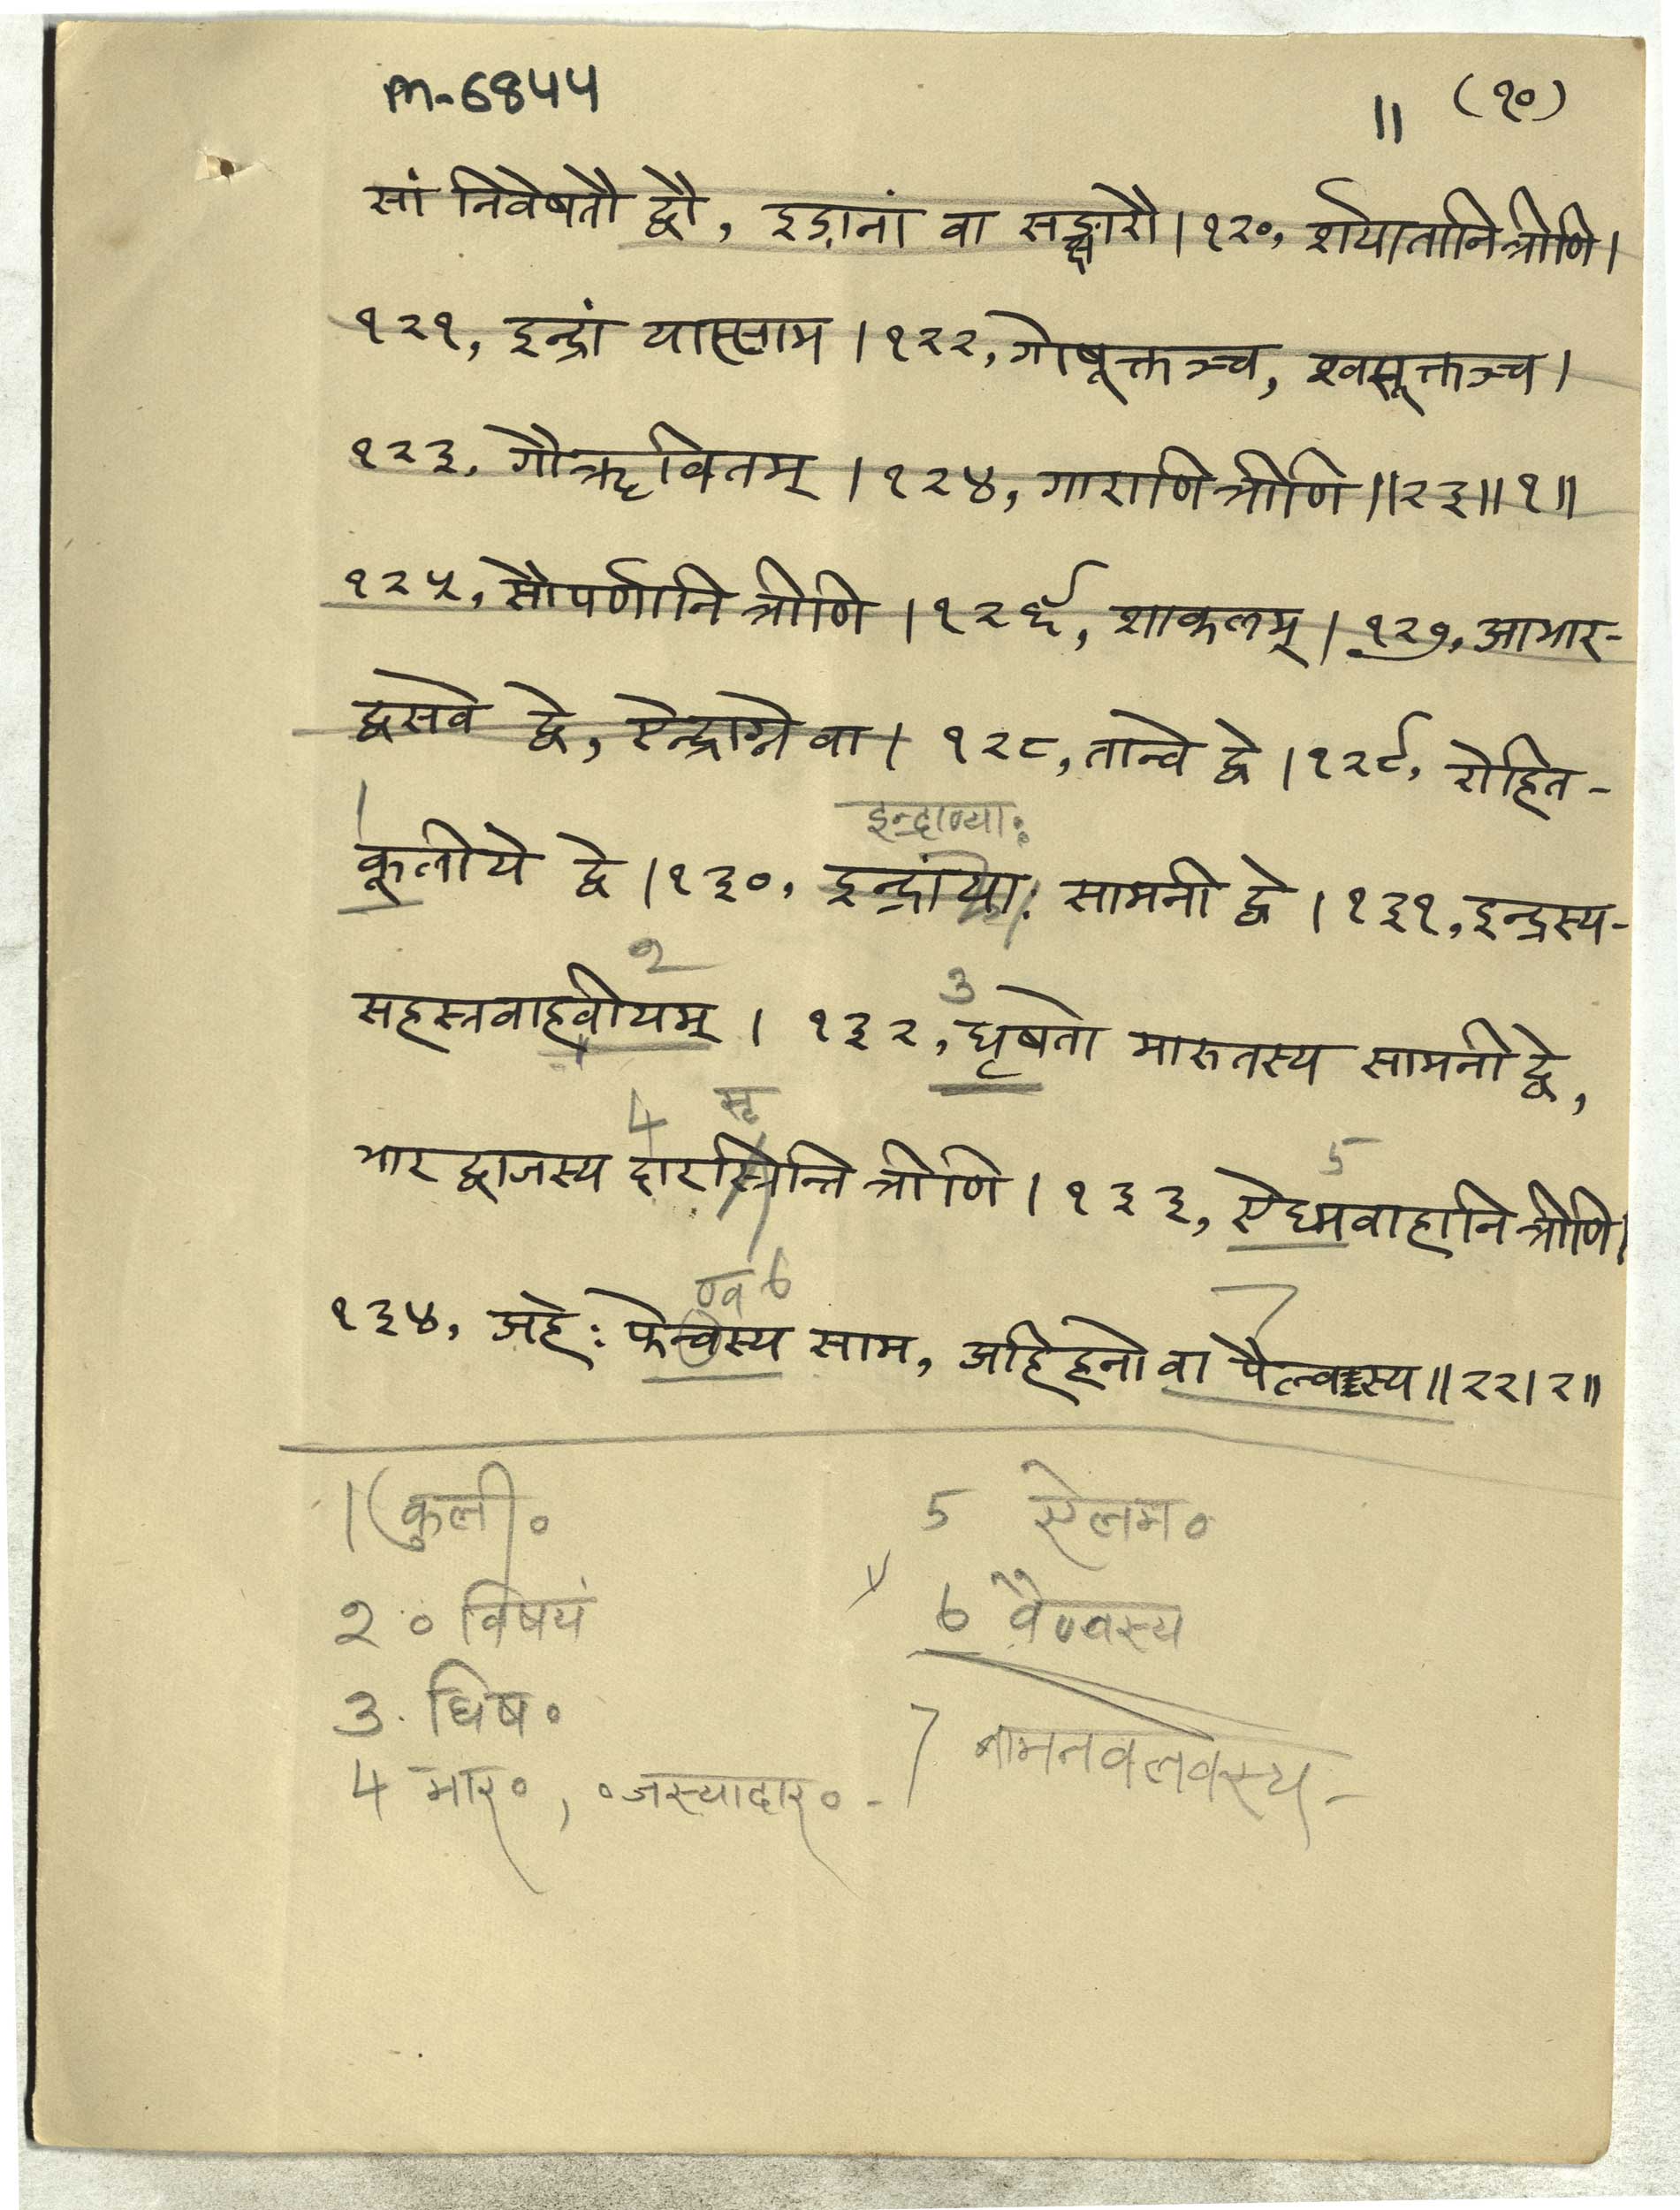 m-6844
11 (१०)
सां निवेषतौ द्वौ, इडानां वा सङ्क्षारौ । १२०, र्शयातानि त्रीणि ।
१२१, इन्द्रां यास्साम । १२२, गोषूक्तञ्च, श्वसूक्तञ्च ।
१२३, गौऋवितम् । १२४, गाराणि त्रीणि ॥ २३ ॥ १ ॥
१२५, सौपर्णानि त्रीणि । १२६, शाकलम् । १२७, आभार-
द्वसवे द्वे, ऐन्द्राग्ने वा । १२८, तान्वे द्वे । १२९, रोहित-
1
इन्द्राण्याः
कूलीये द्वे । १३०, इन्द्रांयाः सामनी द्वे । १३१, इन्द्रस्य-
2 3
सहस्त्रवाहवीयम् । १३२, घृषतो मारुतस्य सामनी द्वे,
4 सृ 5
भारद्वाजस्य दार त्रीणि । १३३, ऐध्मवाहानि त्रीणि ।
ण्व 6 7
१३४, अहेः फेन्वस्य साम, अहिहनो वा पैल्वस्य ॥ २२ । २ ॥
1 कुली०
2 ० विषयं
3. घिष०
4 मार०, ०जस्यादार० -
5 ऐलम०
6 वैण्वस्य
7 नामनवलवस्य -